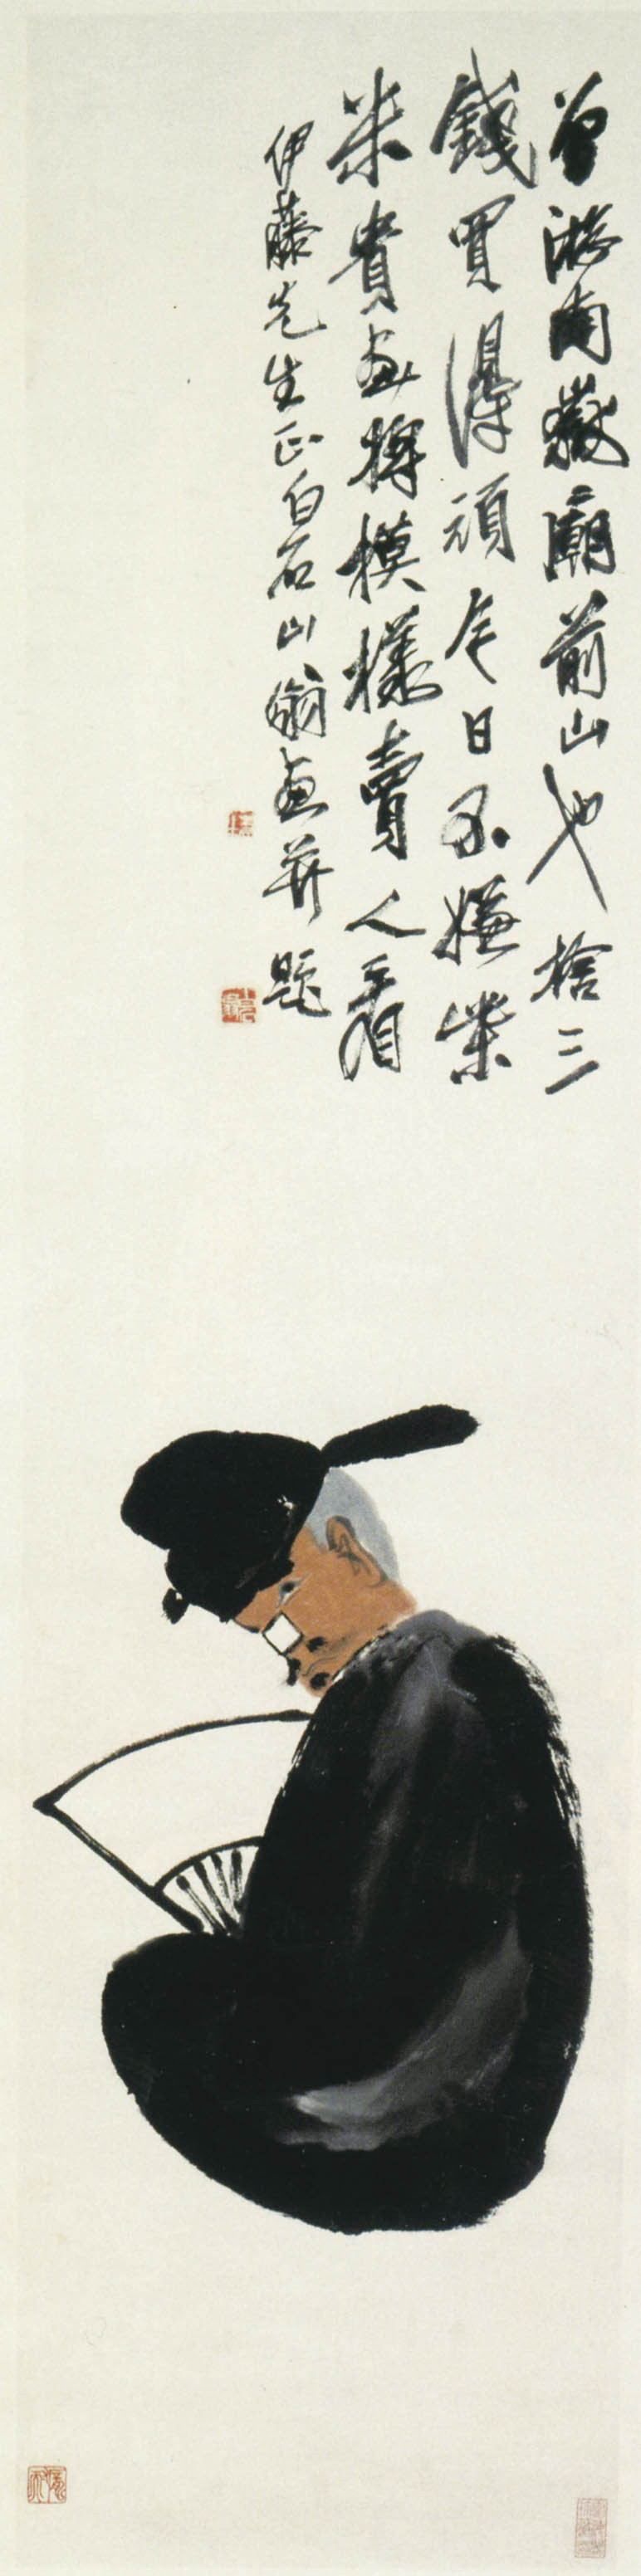 曾游南嶽廟前山也捨三
錢買得頑今日不嫌柴
米貴畫將模樣賣人看
伊藤先生正白石山翁畫并題